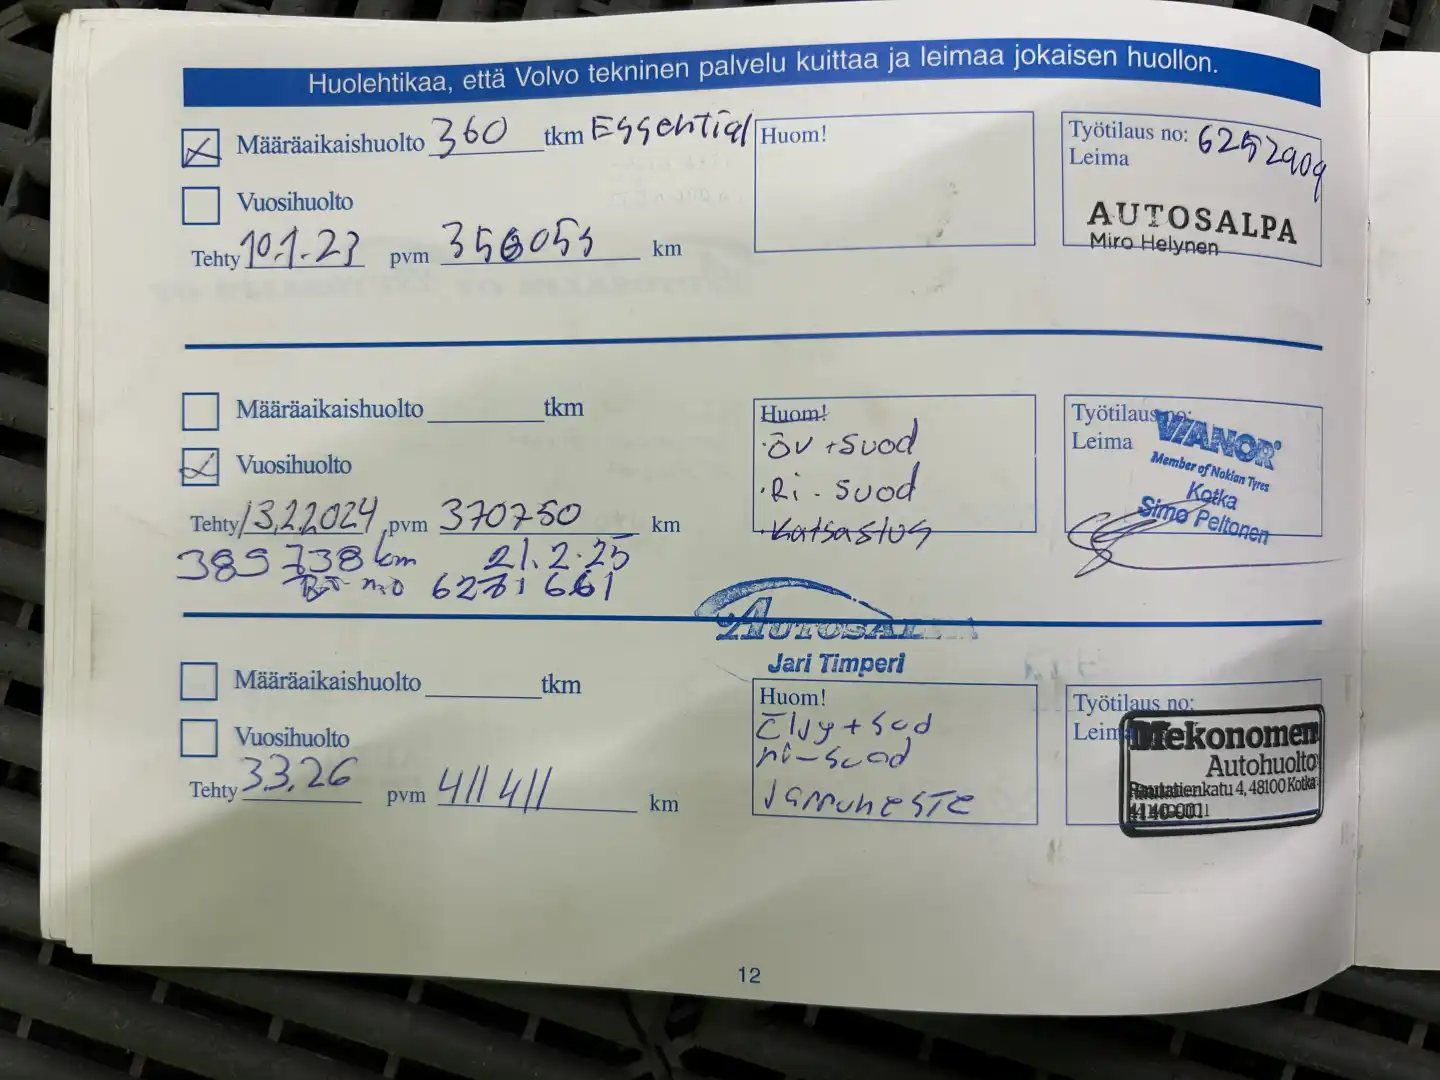 Huolehtikaa, että Volvo tekninen palvelu kuittaa ja leimaa jokaisen huollon.
Määräaikaishuolto 360 tkm Essential
Vuosihuolto
Tehty 10.1.23 pvm 356053 km
Huom!
Työtilaus no: 6252909
Leima
AUTOSALPA
Miro Helynen
Määräaikaishuolto tkm
Vuosihuolto
Tehty 13.2.2024 pvm 370750 km
389738 km 21.2.25
no 6271661
Huom!
·öv + suod
·Ri - suod
·Katsastus
Työtilaus no:
Leima
VIANOR
Member of Nokian Tyres
Kotka
Simo Peltonen
AUTOSALPA
Jari Timperi
Määräaikaishuolto tkm
Vuosihuolto
Tehty 3.3.26 pvm 411411 km
Huom!
Öljy + sod
ri-suod
Jarruneste
Työtilaus no:
Leima
Mekonomen
Autohuolto
Rautatienkatu 4, 48100 Kotka
12